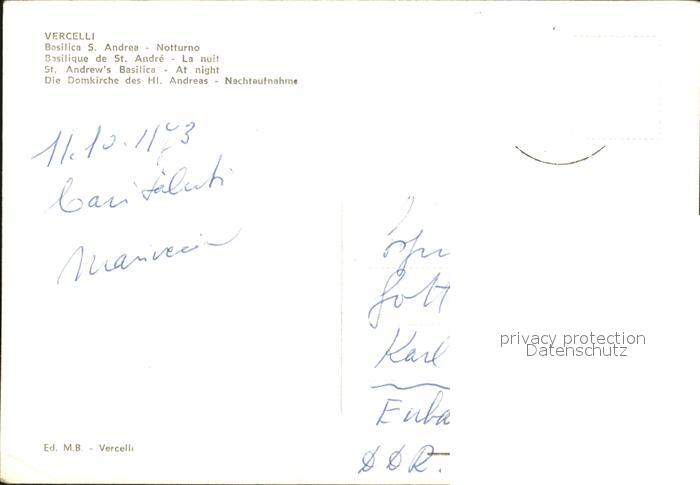 VERCELLI
Basilica S. Andrea - Notturno
Basilique de St. André - La nuit
St. Andrew's Basilica - At night
Die Domkirche des Hl. Andreas - Nachtaufnahme
11.10.1973
Cari saluti
Gott
Karl
privacy protection
Datenschutz
DDR.
Ed. M.B. - Vercelli